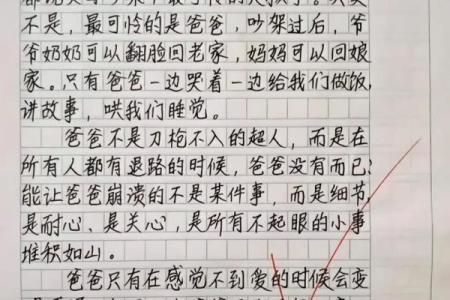 不是，最可怜的是爸爸，吵架过后，爷
爷奶奶可以翻脸回老家，妈妈可以回娘
家。只有爸爸一边哭着一边给我们做饭，
讲故事，哄我们睡觉。
爸爸不是刀枪不入的超人，而是在
所有人都有退路的时候，爸爸没有而已；
能让爸爸崩溃的不是某件事，而是细节，
是耐心、是关心，是所有不起眼的小事
堆积如山。
爸爸只有在感觉不到爱的时候会变